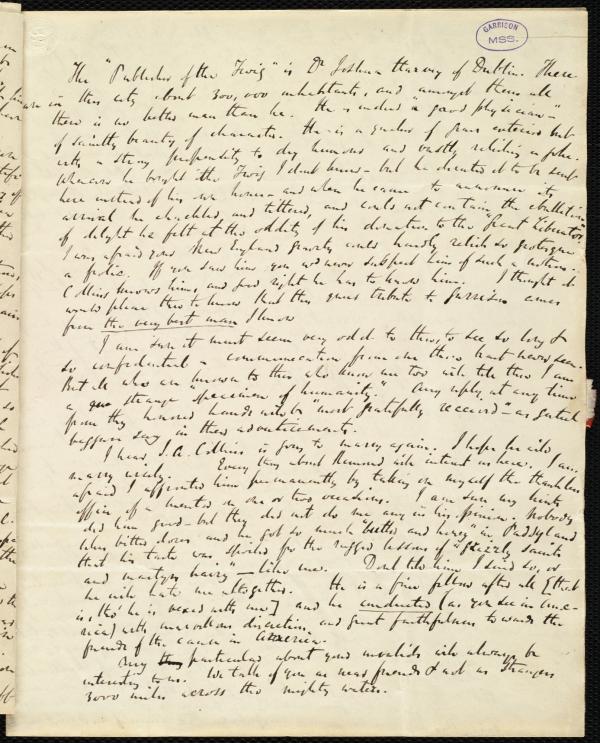 GARRISON
MSS.
The "Publisher of the Twig" is Dr Joshua Harvey of Dublin. There
are in this city about 300,000 inhabitants, and amongst them all
there is no better man than he. He is indeed "a good physician" –
of saintly beauty of character. He is a quaker of grave exterior but
with a strong propensity to dry humour and vastly relishes a joke.
Whence he bought the Twig I don't know – but he desired it to be sent
here instead of his own home – and when he came to announce its
arrival he chuckled, and tittered, and could not contain the ebullition
of delight he felt at the oddity of his donation to the "Great Liberator"
I was afraid your New England gravity could hardly relish so grotesque
a frolic. If you saw him you wd never suspect him of such a notion.
Collins knows him, and good right he has to know him. I thought it
would please thee to know that this great tribute to Garrison comes
from the very best man I know
I am sure it must seem very odd to thee, to see so long &
so confidential a communication from one thou hast never seen.
But all who are known to thee who know me too will tell thee I am
a strange specimen of humanity." Any reply at any time
from thy honored hands will be "most gratefully received" – as genteel
beggars say in their advertisements.
I hear J. A. Collins is going to marry again. I hope he will
marry wisely. Every thing about Remond will interest us here. I am
afraid I affronted him permanently by taking on myself the thankless
office of a mentor on one or two occasions. I am sure my hints
did him good – but they did not do me any in his opinion. Nobody
likes bitter doses and he got so much "butter and honey" in Paddyland
that his taste was spoiled for the rugged lessons of "grizzly saints
and martyrs hairy" – like me. Don't tell him I said so, or
he will hate me altogether. He is a fine fellow after all [that
is, tho' he is vexed with me] and he conducted (as you see in Ame-
rica) with marvellous discretion and great faithfulness towards the
friends of the cause in America.
Any particulars about your movements will always be
interesting to us. We talk of you as near friends & not as strangers
3000 miles across the mighty waters.